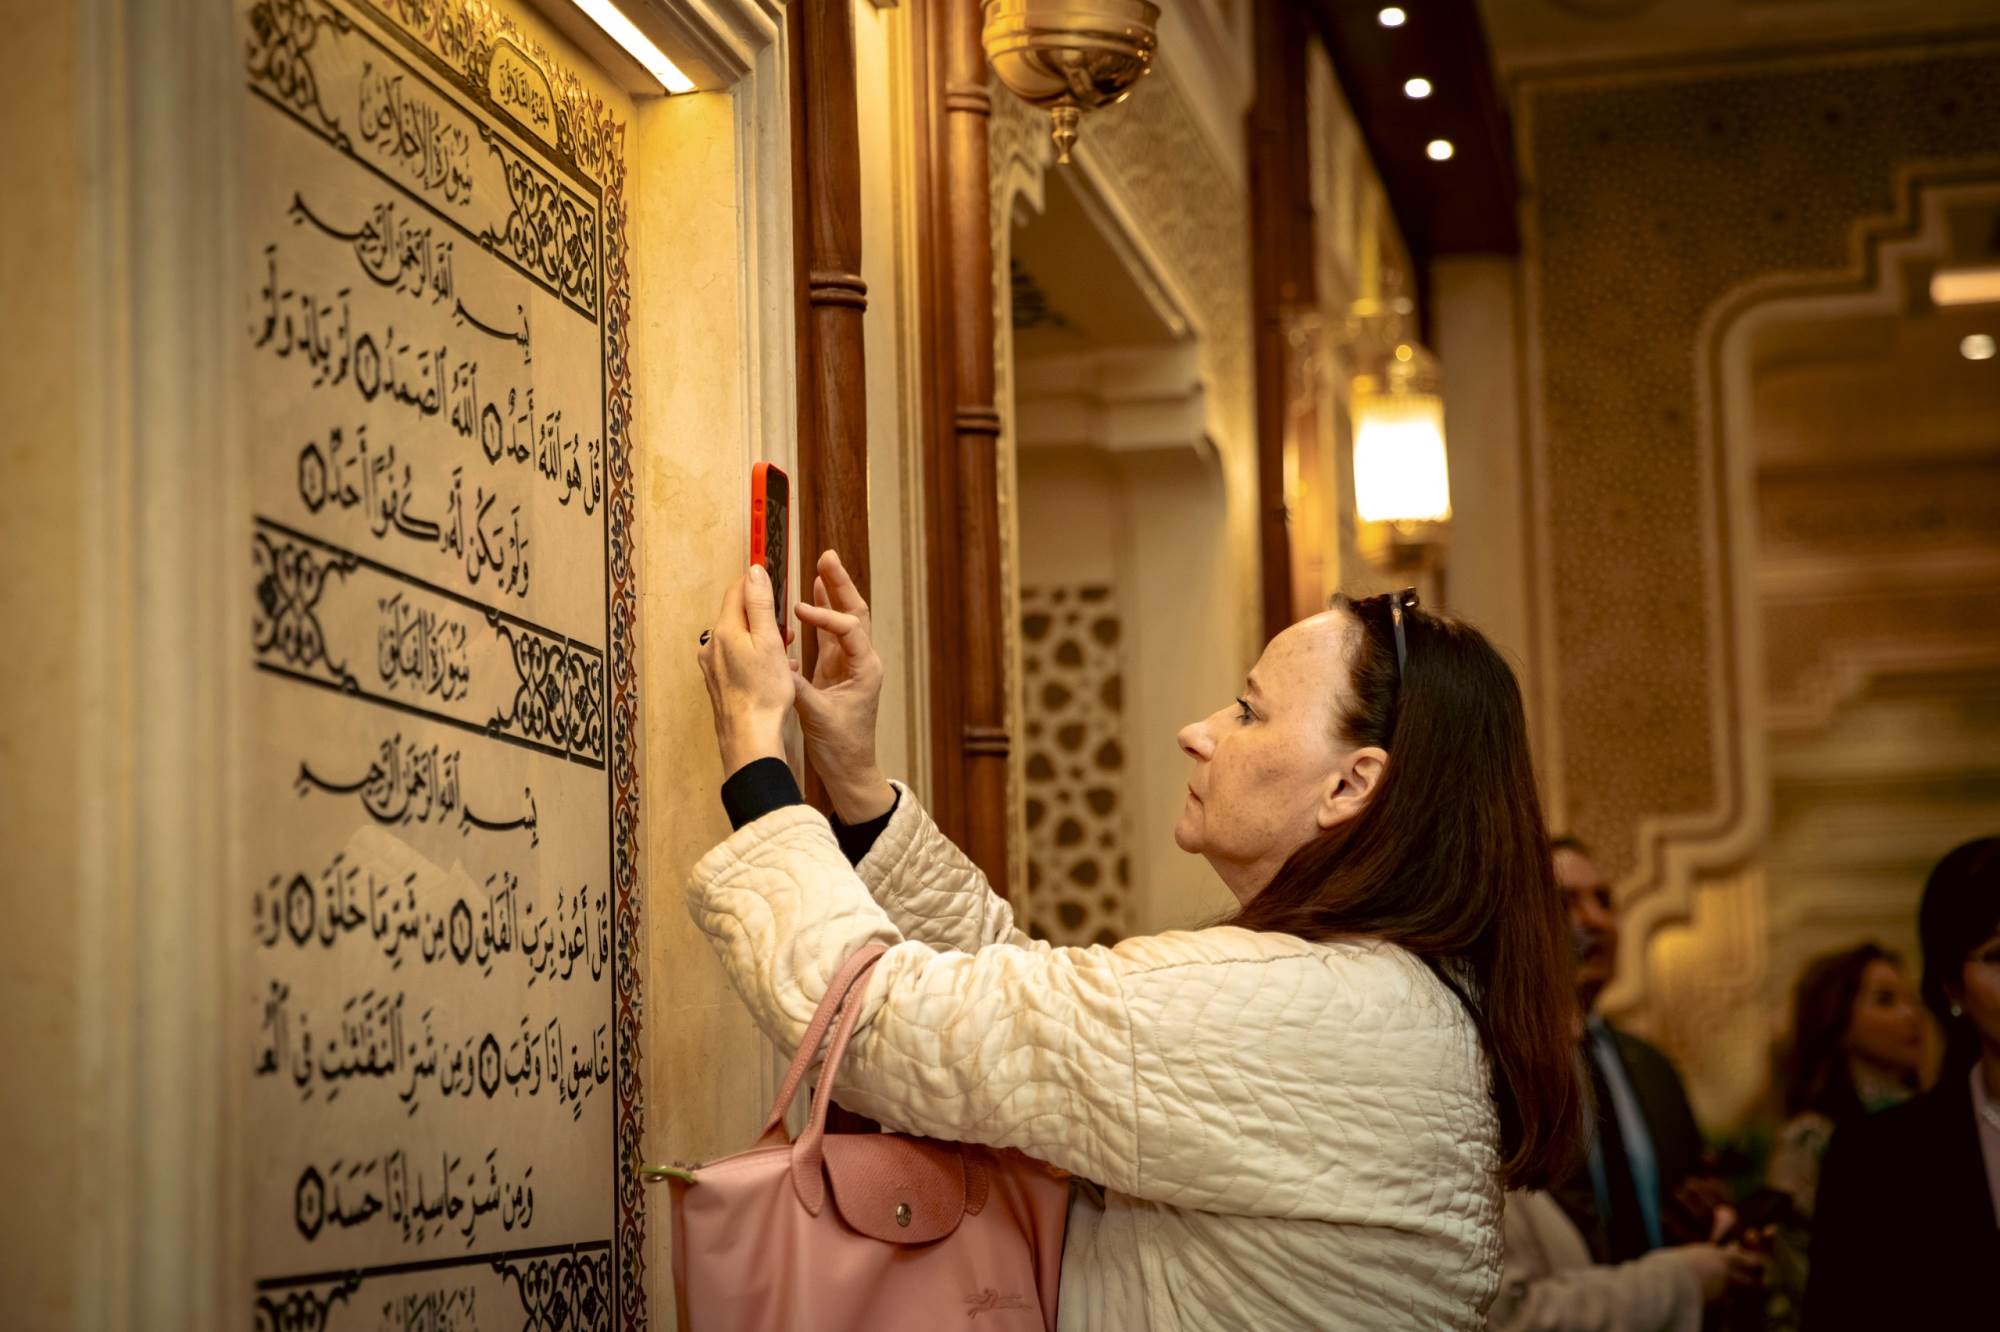 الجزء الثلاثون
سورة الإخلاص
بِسْمِ ٱللَّهِ ٱلرَّحْمَٰنِ ٱلرَّحِيمِ
قُلْ هُوَ ٱللَّهُ أَحَدٌ ١ ٱللَّهُ ٱلصَّمَدُ ٢ لَمْ يَلِدْ وَلَمْ
وَلَمْ يَكُن لَّهُۥ كُفُوًا أَحَدٌۢ ٤
سُورَةُ الفَلَقِ
بِسْمِ ٱللَّهِ ٱلرَّحْمَٰنِ ٱلرَّحِيمِ
قُلْ أَعُوذُ بِرَبِّ ٱلْفَلَقِ ١ مِن شَرِّ مَا خَلَقَ ٢
غَاسِقٍ إِذَا وَقَبَ ٣ وَمِن شَرِّ ٱلنَّفَّٰثَٰتِ فِي
وَمِن شَرِّ حَاسِدٍ إِذَا حَسَدَ ٥